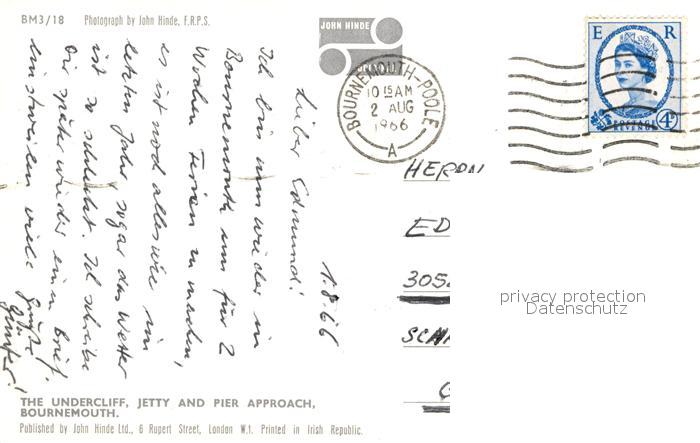 BM3/18 Photograph by John Hinde, F.R.P.S.
JOHN HINDE
BOURNEMOUTH-POOLE
10 15 AM
2 AUG
1966
A
E R
POSTAGE
REVENUE
4D
1.8.66
Lieber Edmund!
Ich bin nun wieder in
Bournemouth um für 2
Wochen Ferien zu machen,
es ist noch alles wie im
letzten Jahr sogar das Wetter
ist so schlecht. Ich schreibe
Dir später wieder einen Brief.
Einstweilen viele Grüße
Günter!
HERRN
ED
305
SCHA
privacy protection
Datenschutz
THE UNDERCLIFF, JETTY AND PIER APPROACH,
BOURNEMOUTH.
Published by John Hinde Ltd., 6 Rupert Street, London W.1. Printed in Irish Republic.